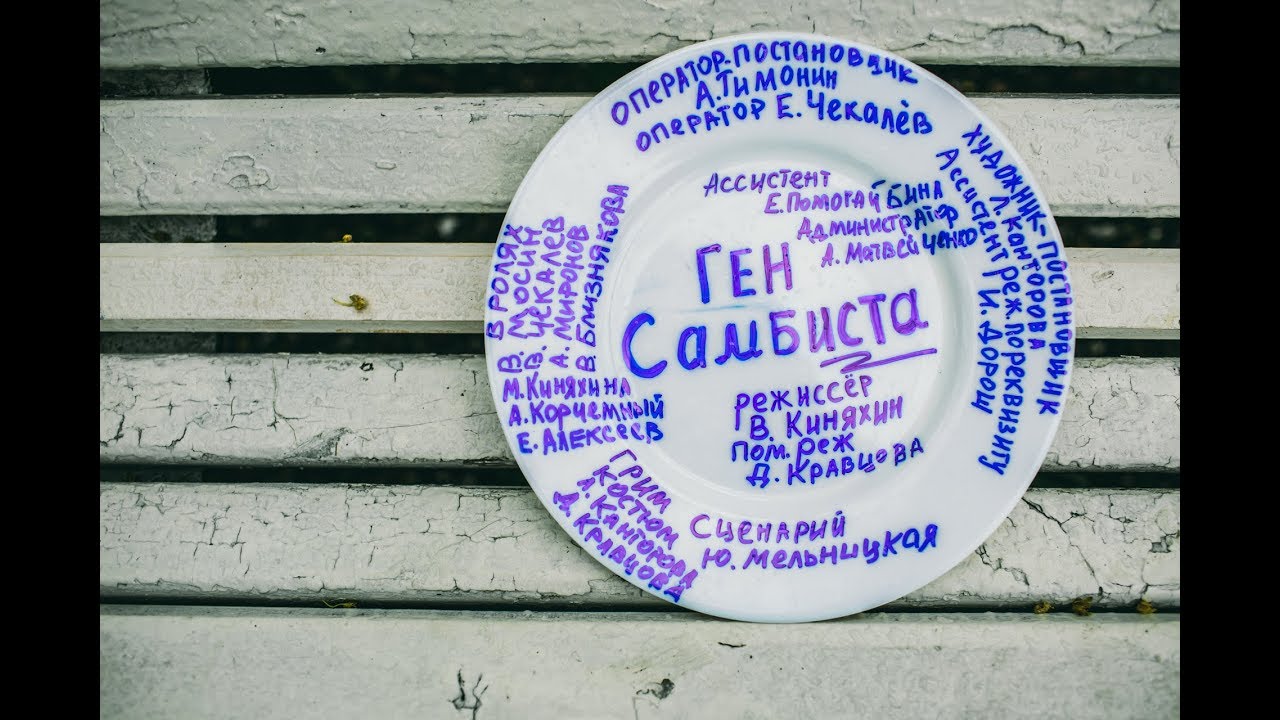 ОПЕРАТОР-ПОСТАНОВЩИК
А.ТИМОНИН
ОПЕРАТОР Е. ЧЕКАЛЁВ
ХУДОЖНИК-ПОСТАНОВЩИК
Л. КАНТОРОВА
АССИСТЕНТ РЕЖ.ПО РЕКВИЗИТУ
И. ДОРОЩ
АССИСТЕНТ
Е.ПОМОГАЙБИНА
АДМИНИСТРАТОР
А. МАТВЕЙЧЕНКО
ГЕН
САМБИСТА
РЕЖИССЁР
В. КИНЯХИН
ПОМ. РЕЖ
Д. КРАВЦОВА
В РОЛЯХ
В. МОСИН
В. ЧЕКАЛЕВ
А. МИРОНОВ
В. БЛИЗНЯКОВА
М. КИНЯХИНА
А. КОРЧЕМНЫЙ
Е. АЛЕКСЕЕВ
ГРИМ
КОСТЮМ
Л. КАНТОРОВА
Д. КРАВЦОВА
СЦЕНАРИЙ
Ю. МЕЛЬНИЦКАЯ